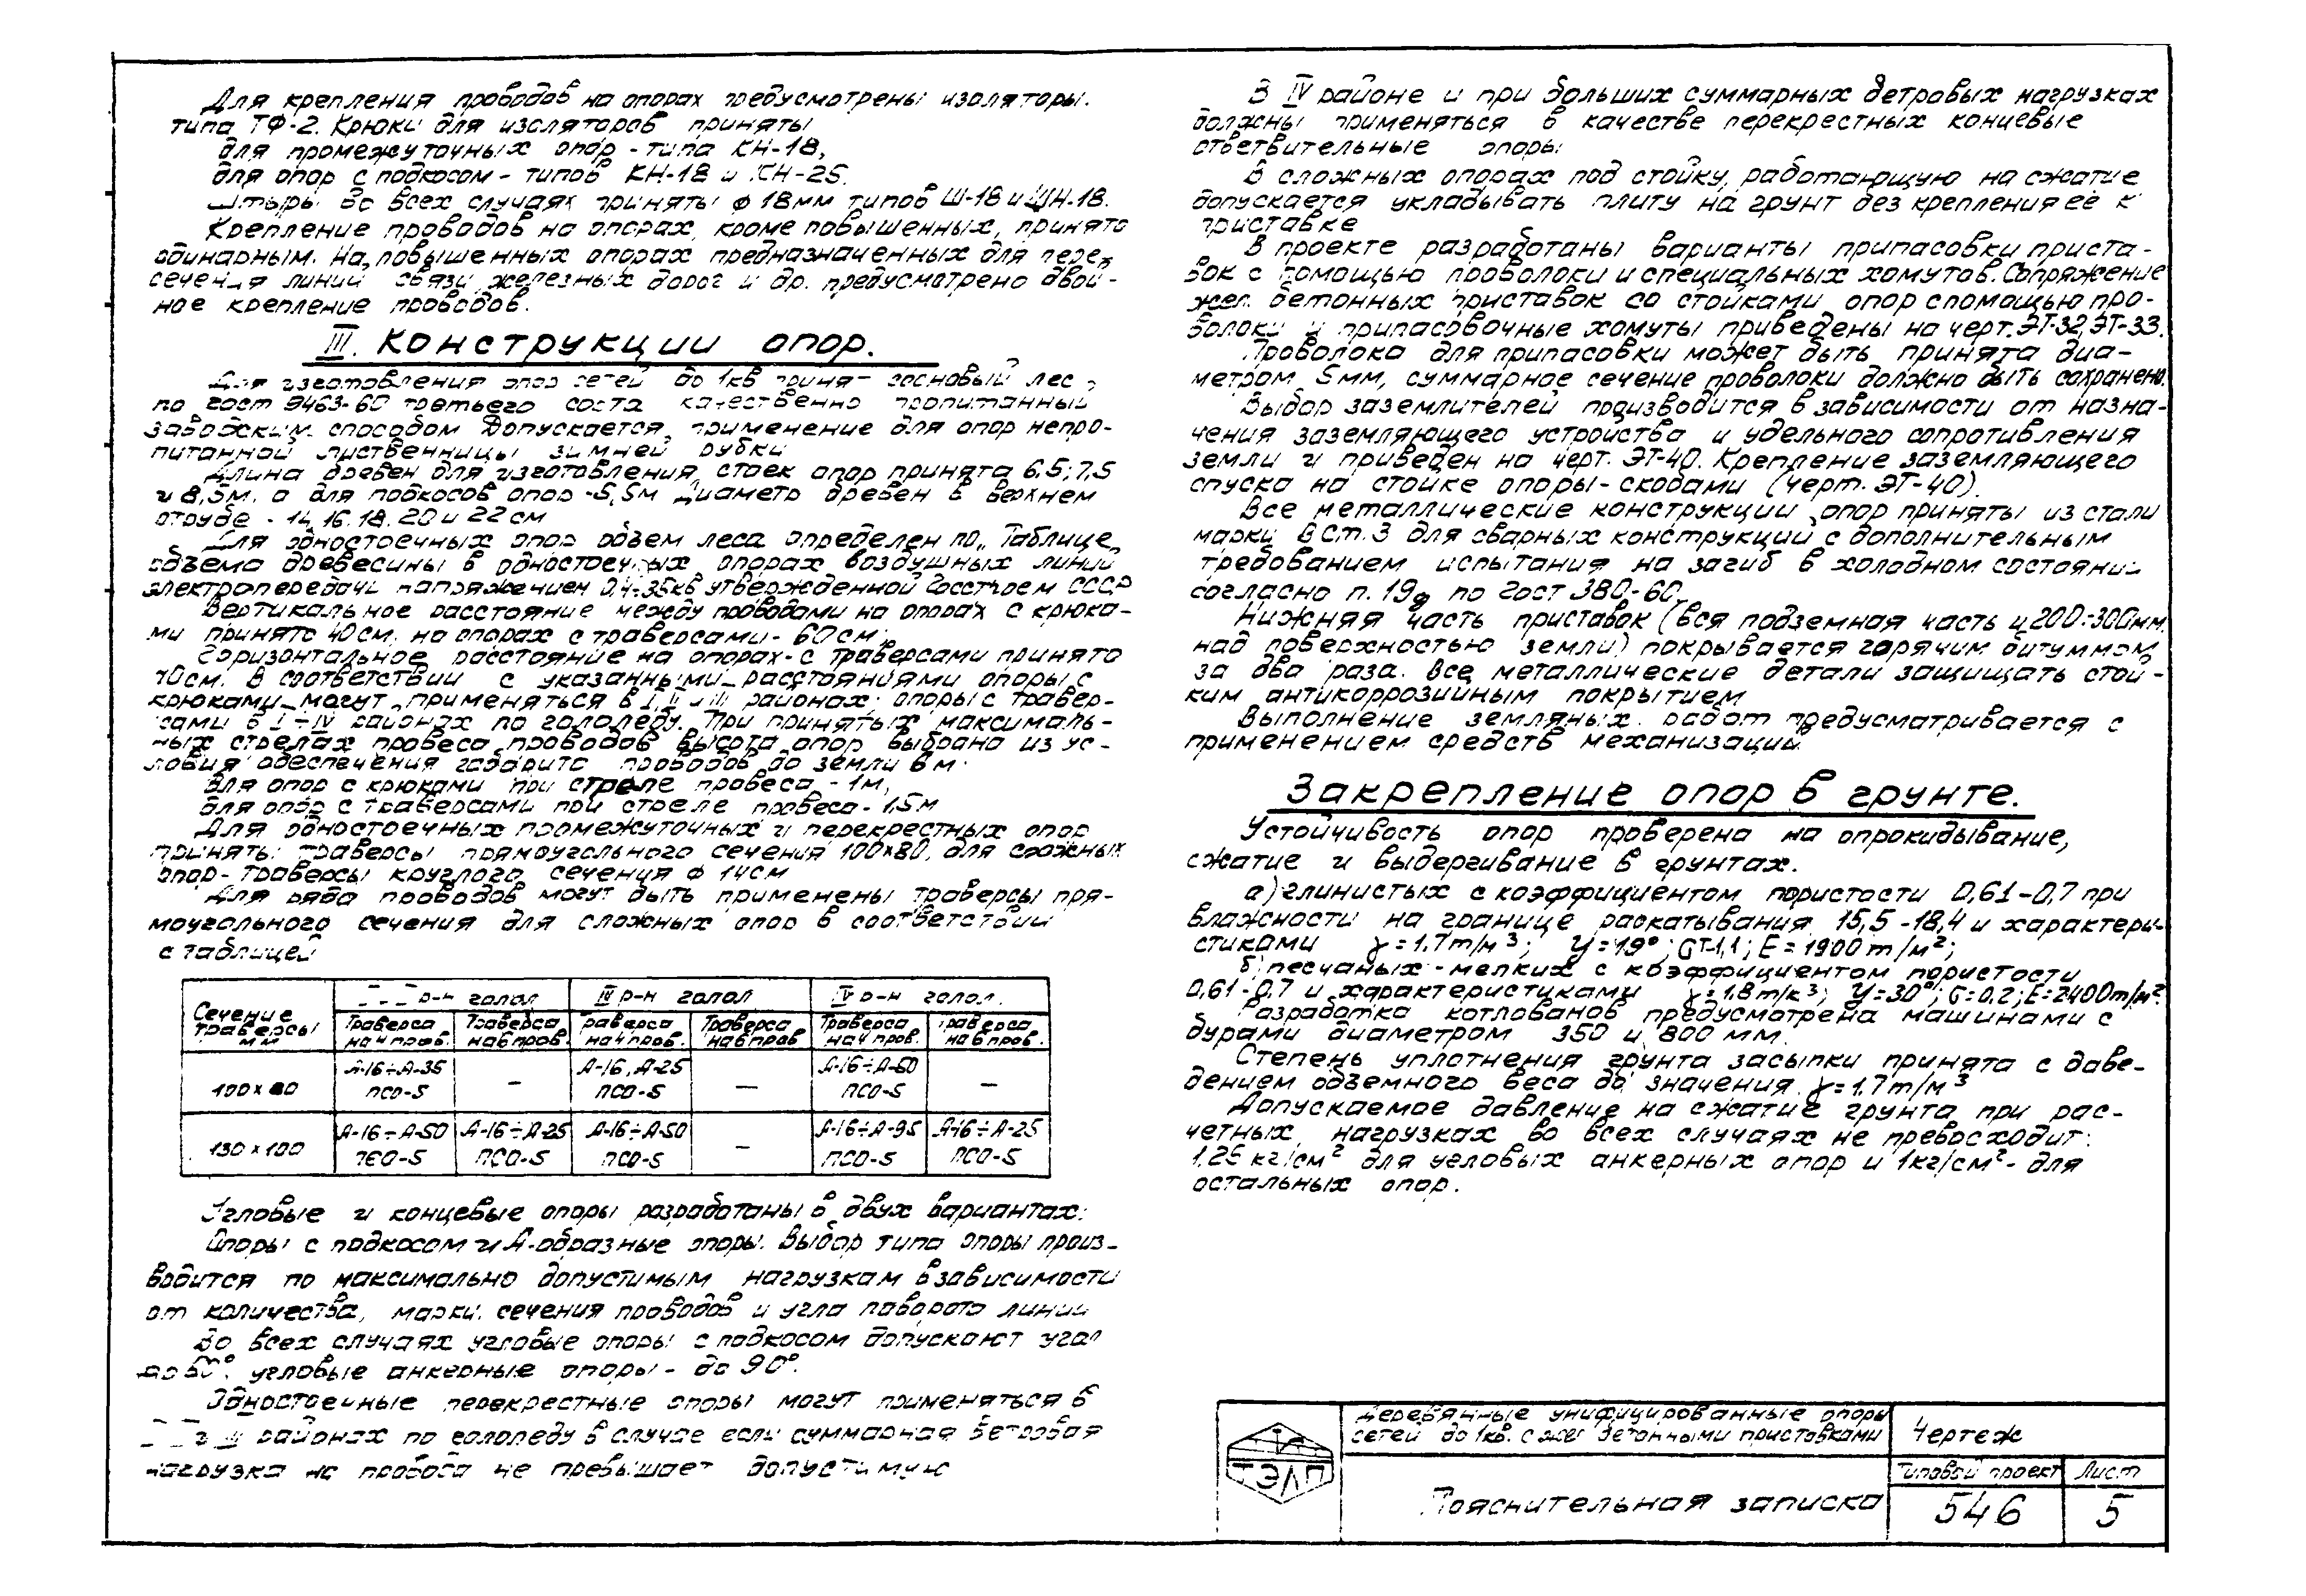 Для крепления проводов на опорах предусмотрены изоляторы.
типа ТФ-2. Крюки для изоляторов приняты
для промежуточных опор - типа КН-18,
для опор с подкосом - типов КН-18 и КН-25.
Штыри во всех случаях приняты ф 18мм типов Ш-18 и ШН-18.
Крепление проводов на опорах, кроме повышенных, принято
одинарным. На повышенных опорах предназначенных для пере-
сечения линий связи, железных дорог и др. предусмотрено двой-
ное крепление проводов.
III. Конструкции опор.
Для изготовления опор сетей до 1кв принят сосновый лес
по гост 9463-60 третьего сорта качественно пропитанный
заводским способом Допускается применение для опор непро-
питанной лиственницы зимней рубки
Длина бревен для изготовления стоек опор принята 6,5; 7,5
и 8,5м. а для подкосов опор - 5,5м Диаметр бревен в верхнем
отрубе - 14, 16. 18. 20 и 22 см
Для одностоечных опор объем леса определен по „Таблице
объема древесины в одностоечных опорах воздушных линий
электропередачи напряжением 0,4-35кв утвержденной Госстроем СССР
Вертикальное расстояние между проводами на опорах с крюка-
ми принято 40см. на опорах с траверсами - 60см;
Горизонтальное расстояние на опорах - с траверсами принято
40см. В соответствии с указанными расстояниями опоры с
крюками могут применяться в I, II и III районах; опоры с травер-
сами в I÷IV районах по гололеду. При принятых максималь-
ных стрелах провеса проводов высота опор выбрана из ус-
ловия обеспечения габарита проводов до земли 6м.
для опор с крюками при стреле провеса - 1м,
для опор с траверсами при стреле провеса - 1.5м
Для одностоечных промежуточных и перекрестных опор
приняты траверсы прямоугольного сечения 100х80, для сложных
опор - траверсы круглого сечения ф 14см
Для ряда проводов могут быть применены траверсы пря-
моугольного сечения для сложных опор в соответствии
с таблицей
Сечение траверсы мм р-н голол IV р-н голол IV р-н голол.
Траверса на 4 пров. Траверса на 6 пров. Траверса на 4 пров. Траверса на 6 пров Траверса на 4 пров. Траверса на 6 пров.
А-16÷А-35 А-16, А-25 А-16÷А-50
100х80 ПСО-5 — ПСО-5 — ПСО-5 —
А-16÷А-50 А-16÷А-25 А-16÷А-50 А-16÷А-95 А-16÷А-25
130х100 ПСО-5 ПСО-5 ПСО-5 — ПСО-5 ПСО-5
Угловые и концевые опоры разработаны в двух вариантах:
Опоры с подкосом и А-образные опоры. Выбор типа опоры произ-
водится по максимально допустимым нагрузкам в зависимости
от количества, марки. сечения проводов и угла поворота линии
Во всех случаях угловые опоры с подкосом допускают угол
до угловые анкерные опоры - до 90°.
Одностоечные перекрестные опоры могут применяться в
и III районах по гололеду в случае если суммарная ветровая
нагрузка на провода не превышает допустимую
В IV районе и при больших суммарных ветровых нагрузках
должны применяться в качестве перекрестных концевые
ответвительные опоры
В сложных опорах под стойку, работающую на сжатие
допускается укладывать плиту на грунт без крепления ее к
приставке
В проекте разработаны варианты припасовки приста-
вок с помощью проволоки и специальных хомутов. Сопряжение
жел. бетонных приставок со стойками опор с помощью про-
волоки и припасовочные хомуты приведены на черт. ЭТ-32, ЭТ-33.
Проволока для припасовки может быть принята диа-
метром 5мм, суммарное сечение проволоки должно быть сохранено.
Выбор заземлителей производится в зависимости от назна-
чения заземляющего устройства и удельного сопротивления
земли и приведен на черт. ЭТ-40. Крепление заземляющего
спуска на стойке опоры - скобами (черт. ЭТ-40).
Все металлические конструкции опор приняты из стали
марки В Ст. 3 для сварных конструкций с дополнительным
требованием испытания на загиб в холодном состоянии
согласно п. 19д по гост 380-60.
Нижняя часть приставок (вся подземная часть и 200÷300мм.
над поверхностью земли) покрывается горячим битуммом
за два раза. Все металлические детали защищать стой-
ким антикоррозийным покрытием
Выполнение земляных работ предусматривается с
применением средств механизации.
Закрепление опор в грунте.
Устойчивость опор проверена на опрокидывание,
сжатие и выдергивание в грунтах.
а) глинистых с коэффициентом пористости 0,61-0,7 при
влажности на границе раскатывания 15,5-18,4 и характери-
стиками γ = 1.7т/м³; У = 19°; GТ-1,1; Е = 1900т/м²;
б) песчаных - мелких с коэффициентом пористости
0,61-0,7 и характеристиками γ = 1,8т/м³; У = 30°; G = 0,2; Е = 2400т/м².
Разработка котлованов предусмотрена машинами с
бурами диаметром 350 и 800 мм.
Степень уплотнения грунта засыпки принята с дове-
дением объемного веса до значения γ = 1.7т/м³
Допускаемое давление на сжатие грунта при рас-
четных нагрузках во всех случаях не превосходит:
1,25 кг/см² для угловых анкерных опор и 1кг/см² - для
остальных опор.
ТЭЛП
Деревянные унифицированные опоры
сетей до 1кв. с жел бетонными приставками
Чертеж
Пояснительная записка
Типовой проект Лист
546 5